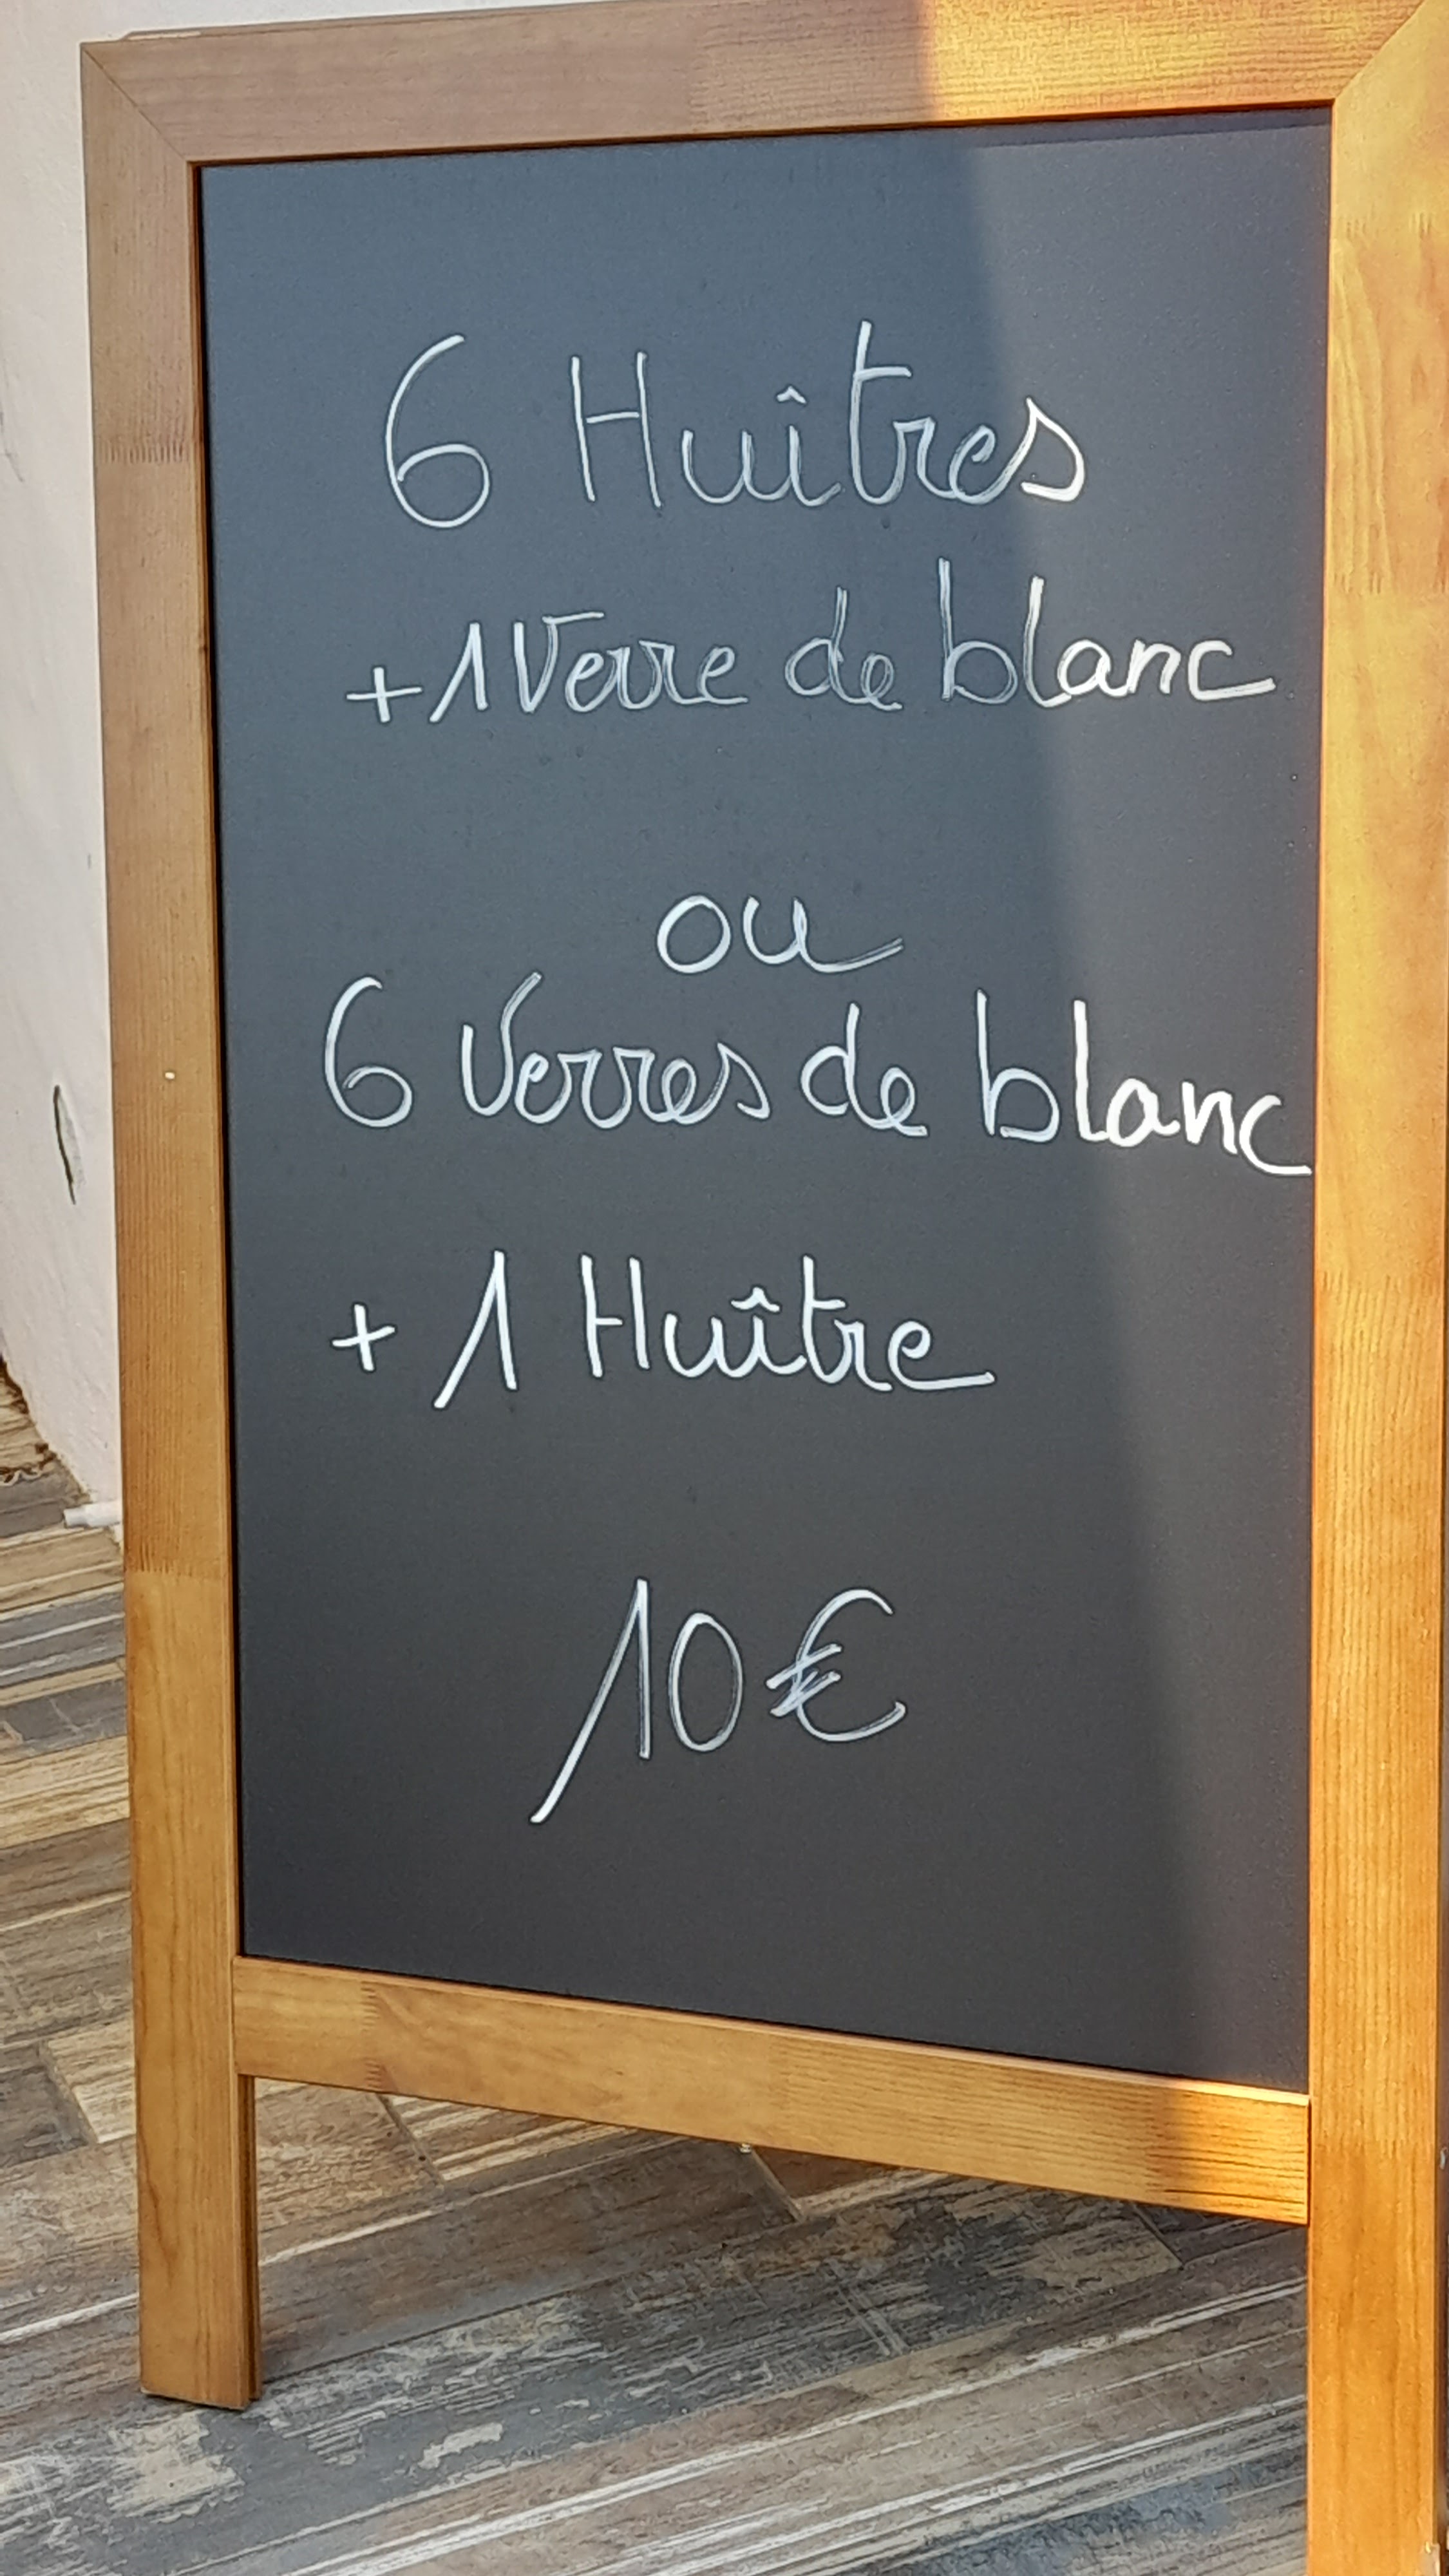 6 Huîtres
+1 Verre de blanc
ou
6 Verres de blanc
+ 1 Huître
10€